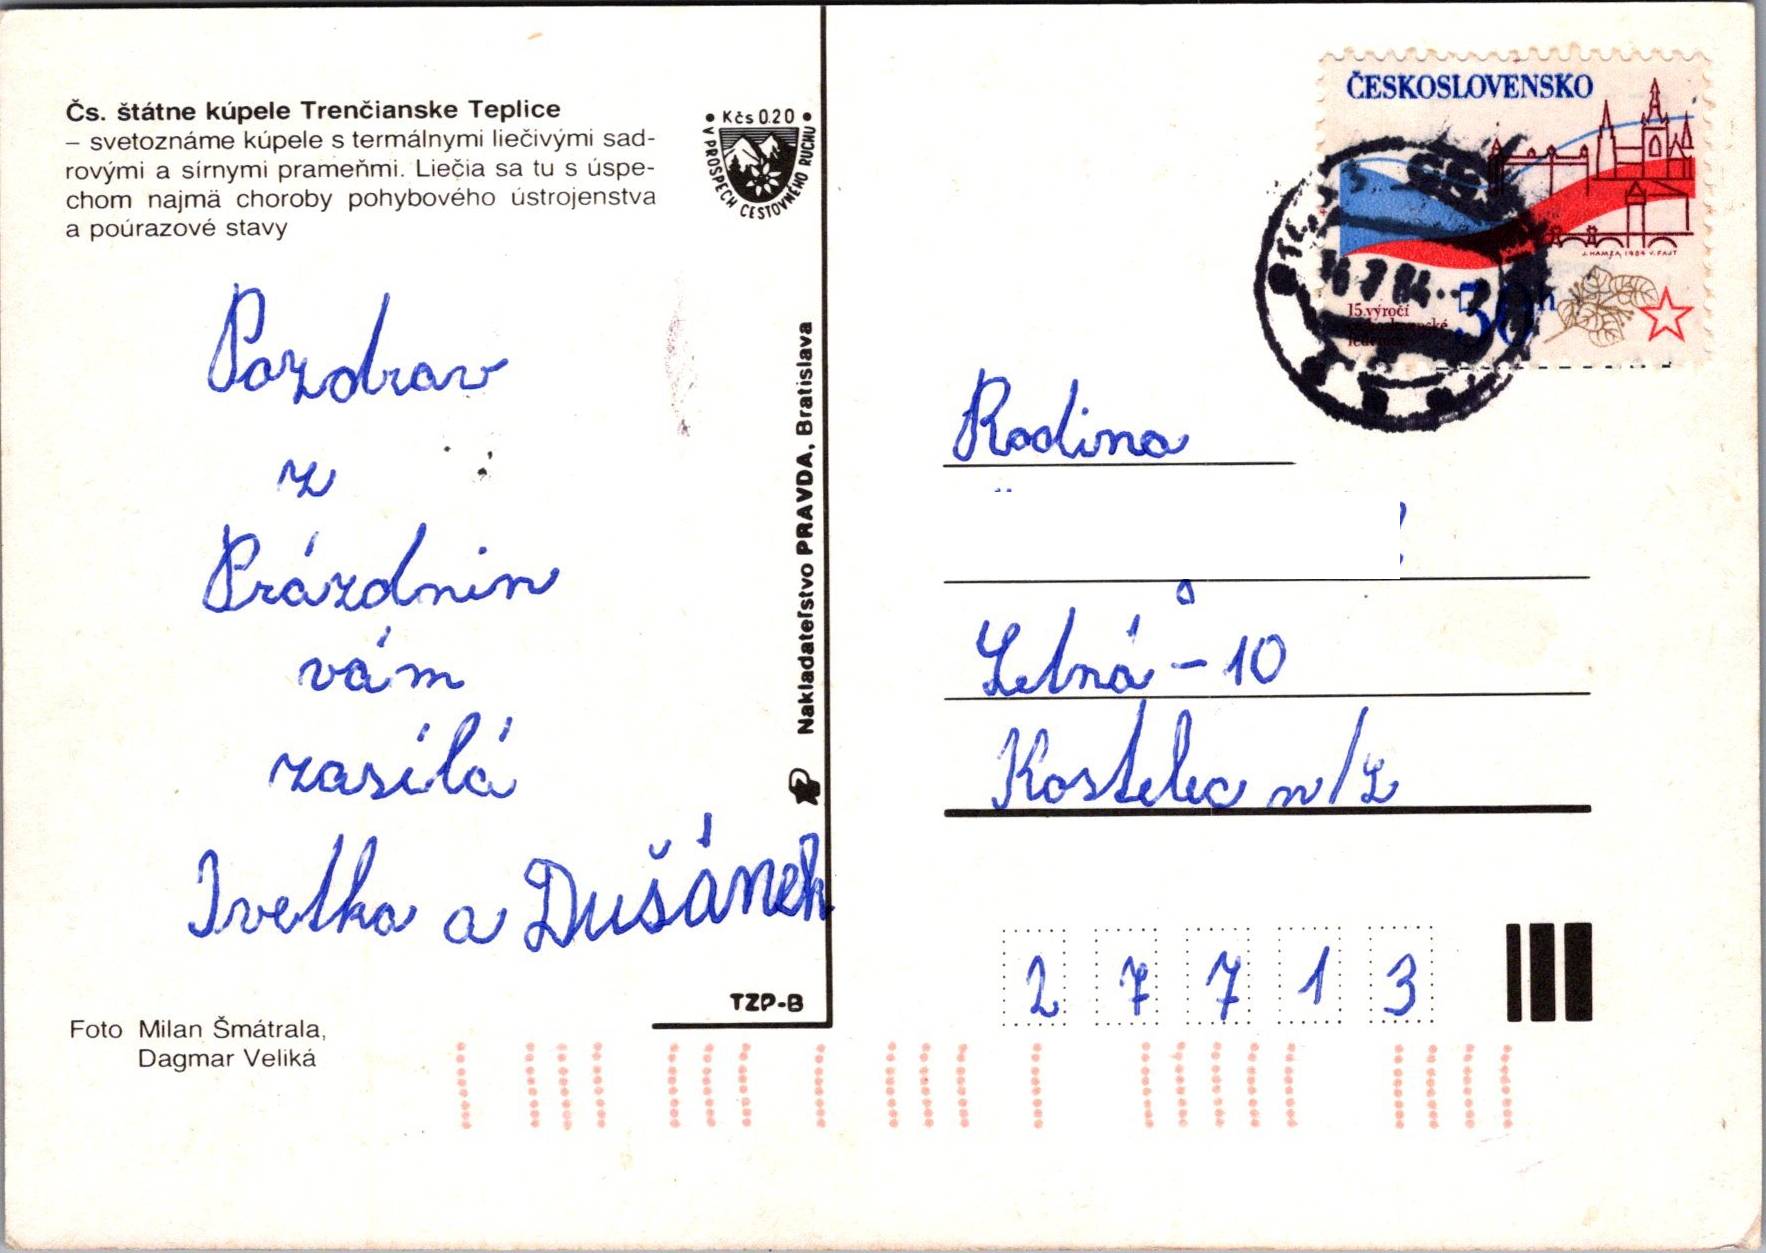 Čs. štátne kúpele Trenčianske Teplice
– svetoznáme kúpele s termálnymi liečivými sad-
rovými a sírnymi prameňmi. Liečia sa tu s úspe-
chom najmä choroby pohybového ústrojenstva
a poúrazové stavy
Kčs 0.20
V PROSPECH CESTOVNÉHO RUCHU
Pozdrav
z
Prázdnin
vám
zasílá
Ivetka a Dušánek
Foto Milan Šmátrala,
Dagmar Veliká
TZP-B
Nakladateľstvo PRAVDA, Bratislava
ČESKOSLOVENSKO
J. HAMZA 1984 V. FAJT
15. výročí
50 h
16.7.84
Rodina
Letná – 10
Kostelec n/L
2 7 7 1 3